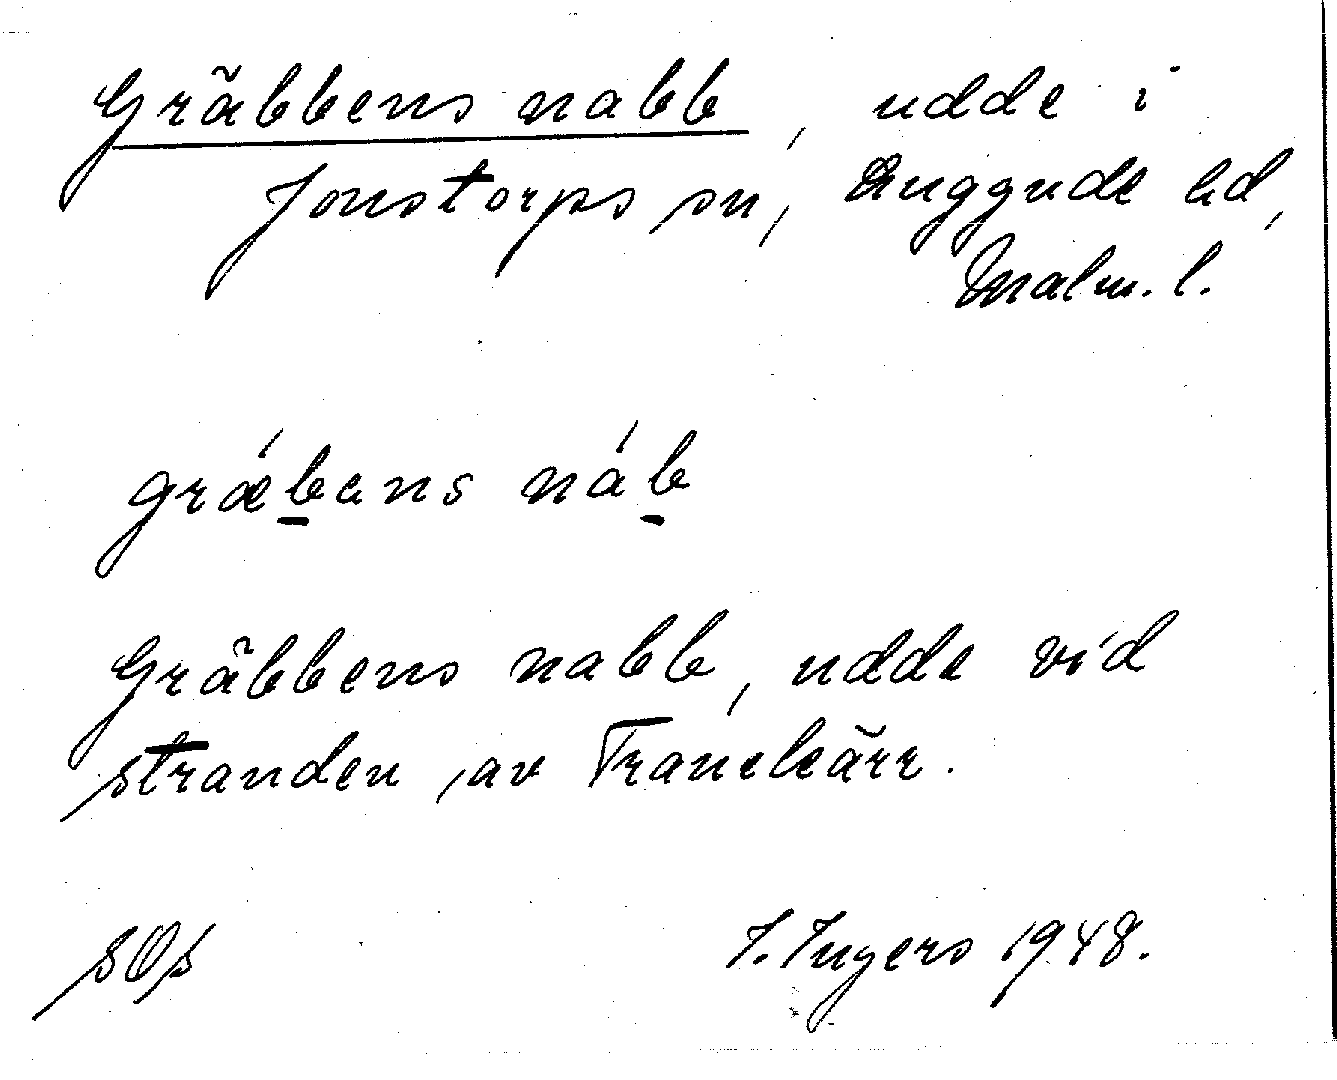 Gräbbens nabb, udde i
Jonstorps sn, Luggude hd,
Malm. l.
grǽb̲ens náb̲
Gräbbens nabb, udde vid
stranden av Tranekärr.
I. Ingers 1948.